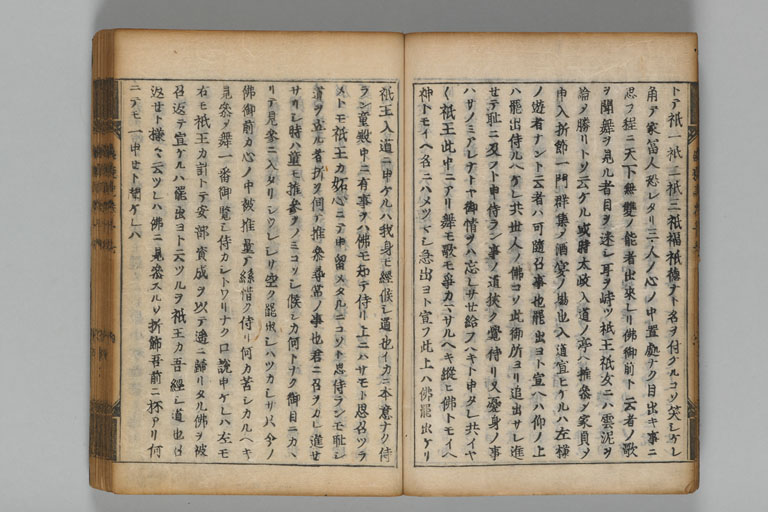 トテ祇一祇二祇三祇福祇徳ナト名ヲ付グルコソ笑シケレ
角テ家富人恐レタリ三人ノ心ノ中置處ナク目出キ事ニ
思フ程ニ天下無雙ノ能者出來レリ佛御前ト云者ノ歌
ヲ聞舞ヲ見ル者目ヲ迷シ耳ヲ峙ツ祇王祇女ニハ雲泥ヲ
論勝リトソ云ケル或時太政入道ノ亭ヘ推參ス家貞ヲ
申入折節一門群集ノ酒宴ノ場也入道宣ヒケルハ左様
ノ遊者ナント云者ハ可随召事也罷出ヨト宣ヘハ仰ノ上
ハ罷出侍ルヘケレ共世人ノ佛コソ此御所ヨリ追出サレ進
せテ耻ニ及フト申侍ラン事ノ道狭ク覺侍リ又憂身ノ事
ハサノミアレナトヤ御情ヲハ忘レサせ給フヘキト申タレ共イヤ
く祇王此中ニアリ舞モ歌モ爭カハサルヘキ縦ヒ佛トモイヘ
神トモイヘ名ニハメツヘシ急出ヨト宣フ此上ハ佛罷出ケリ
祇王入道ニ申ケルハ我身モ經候シ道也イカニ本意ナク侍
ラン童數申ニ有事ヲハ佛モ知テ侍リ上ニハサモト思召ツラ
メトモ祇王カ妬心ニテ申留メタルニコソト思侍ランモ耻シ
道ヲ立ル者折ヲ伺テ推參尋常ノ事也君ニ召ヲカレ進せ
サリシ時ハ童モ推參ヲノミコソシ候シカ何トナク御目ニカヽ
リテ見參ニ入タリシウレシサ空ク罷出シハツカシサ只今ノ
佛御前カ心ノ中被推量テ絲惜ク侍リ何カ苦シカルヘキ
見參ヲ舞一番御覧シ侍カシトワリナク口説申ケレハ左モ
右モ祇王カ計トテ安部資成ヲ以テ遙ニ歸リタル佛ヲ被
召返テ宣ケルハ罷出ヨト云ツルヲ祇王カ吾經シ道也召
返せト様々ニ云ツレハ佛ニ見參スルソ折節吾前ニ杯アリ何
ニテモ一申せト有ケレハ